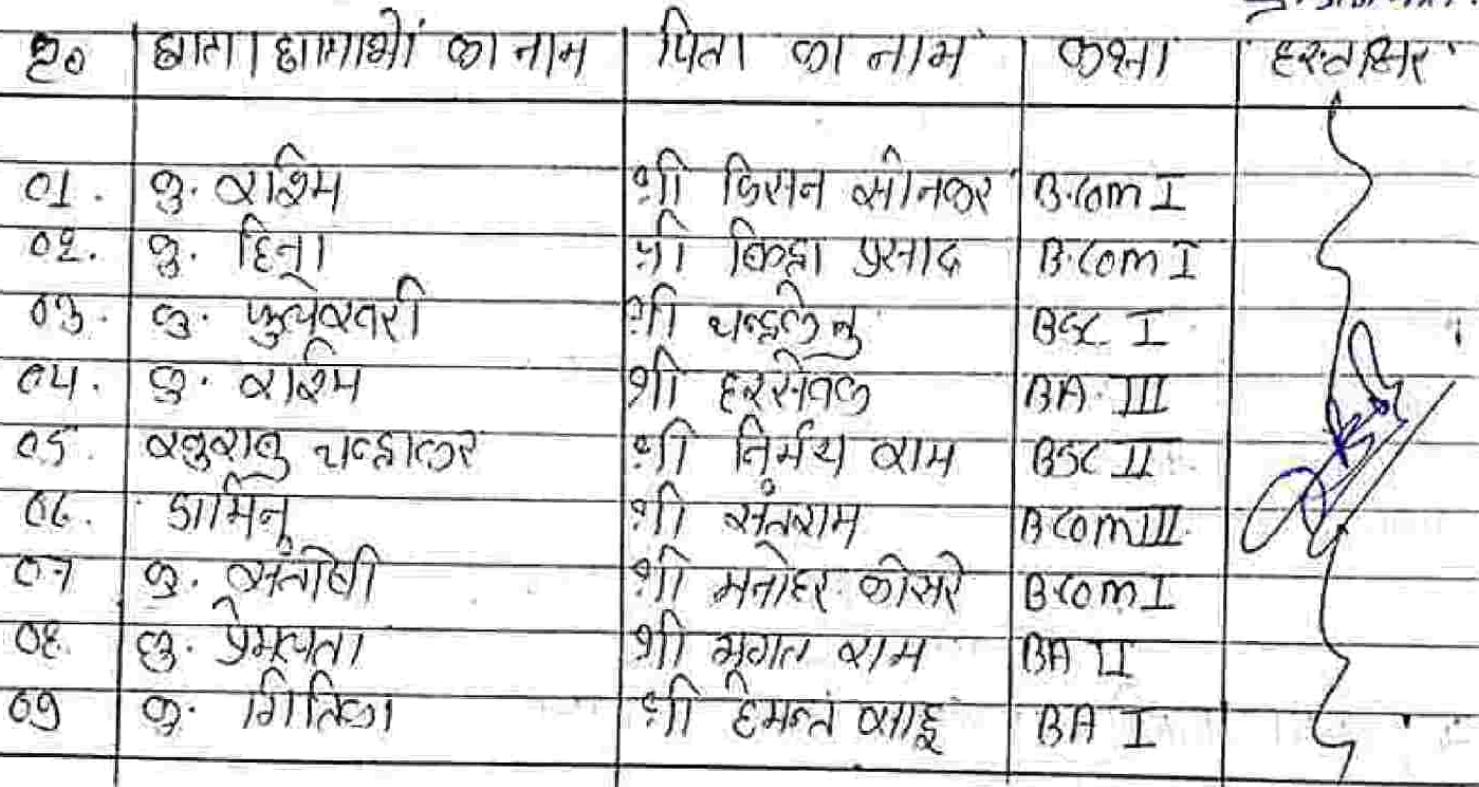 छात्र/छात्राओं का नाम पिता का नाम कक्षा हस्ताक्षर
01. कु. रश्मि श्री किसन सोनकर B.Com I
02. कु. हिना श्री प्रसाद B.Com I
03. कु. फुलेश्वरी श्री BSC I
04. कु. रश्मि श्री हरसेवक BA III
05. श्री निर्मय राम BSC II
06. श्री संतराम BCom III
07 कु. संतोषी श्री मनोहर कोसरे BCom I
08. कु. प्रेमलता श्री भगत राम BA II
09 कु. गितिका श्री हेमन्त साहू BA I